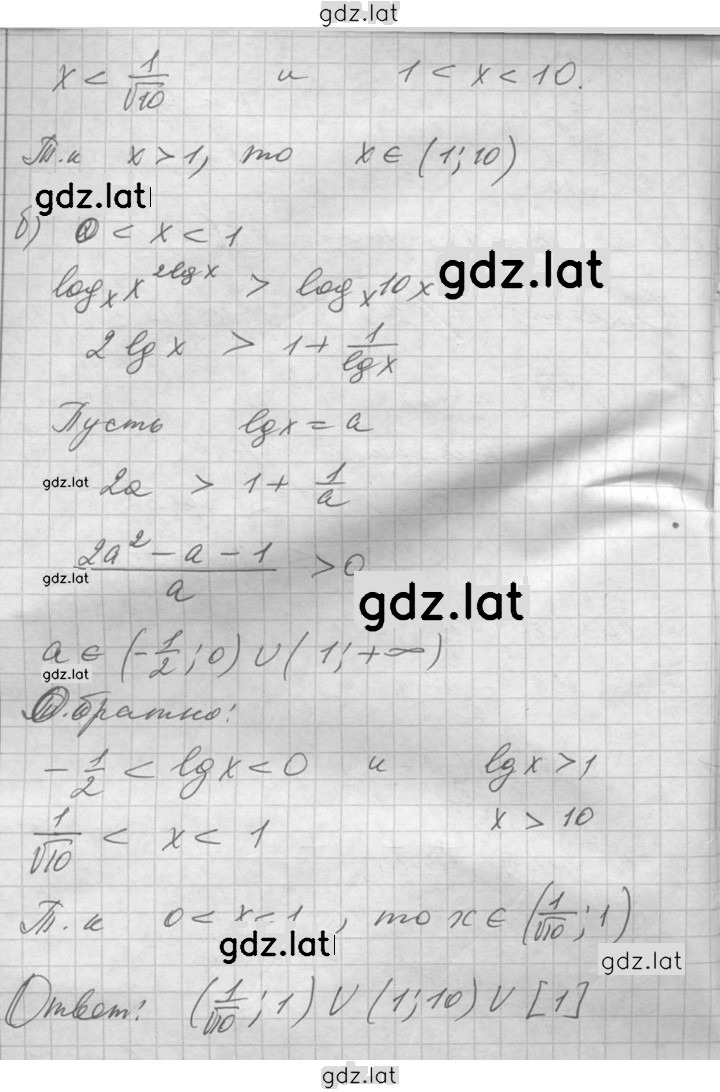 gdz.lat
x < 1/√10 и 1 < x < 10.
Т.к x > 1, то x ∈ (1; 10)
gdz.lat
б) 0 < x < 1
gdz.lat
log_x x^(2lg x) > log_x 10x
2 lg x > 1 + 1/lg x
Пусть lg x = a
gdz.lat
2a > 1 + 1/a
(2a² - a - 1)/a > 0
gdz.lat
gdz.lat
a ∈ (-1/2; 0) ∪ (1; +∞)
gdz.lat
Обратно:
-1/2 < lg x < 0 и lg x > 1
1/√10 < x < 1 x > 10
Т.к 0 < x < 1, то x ∈ (1/√10; 1)
gdz.lat
gdz.lat
Ответ: (1/√10; 1) ∪ (1; 10) ∪ [1]
gdz.lat